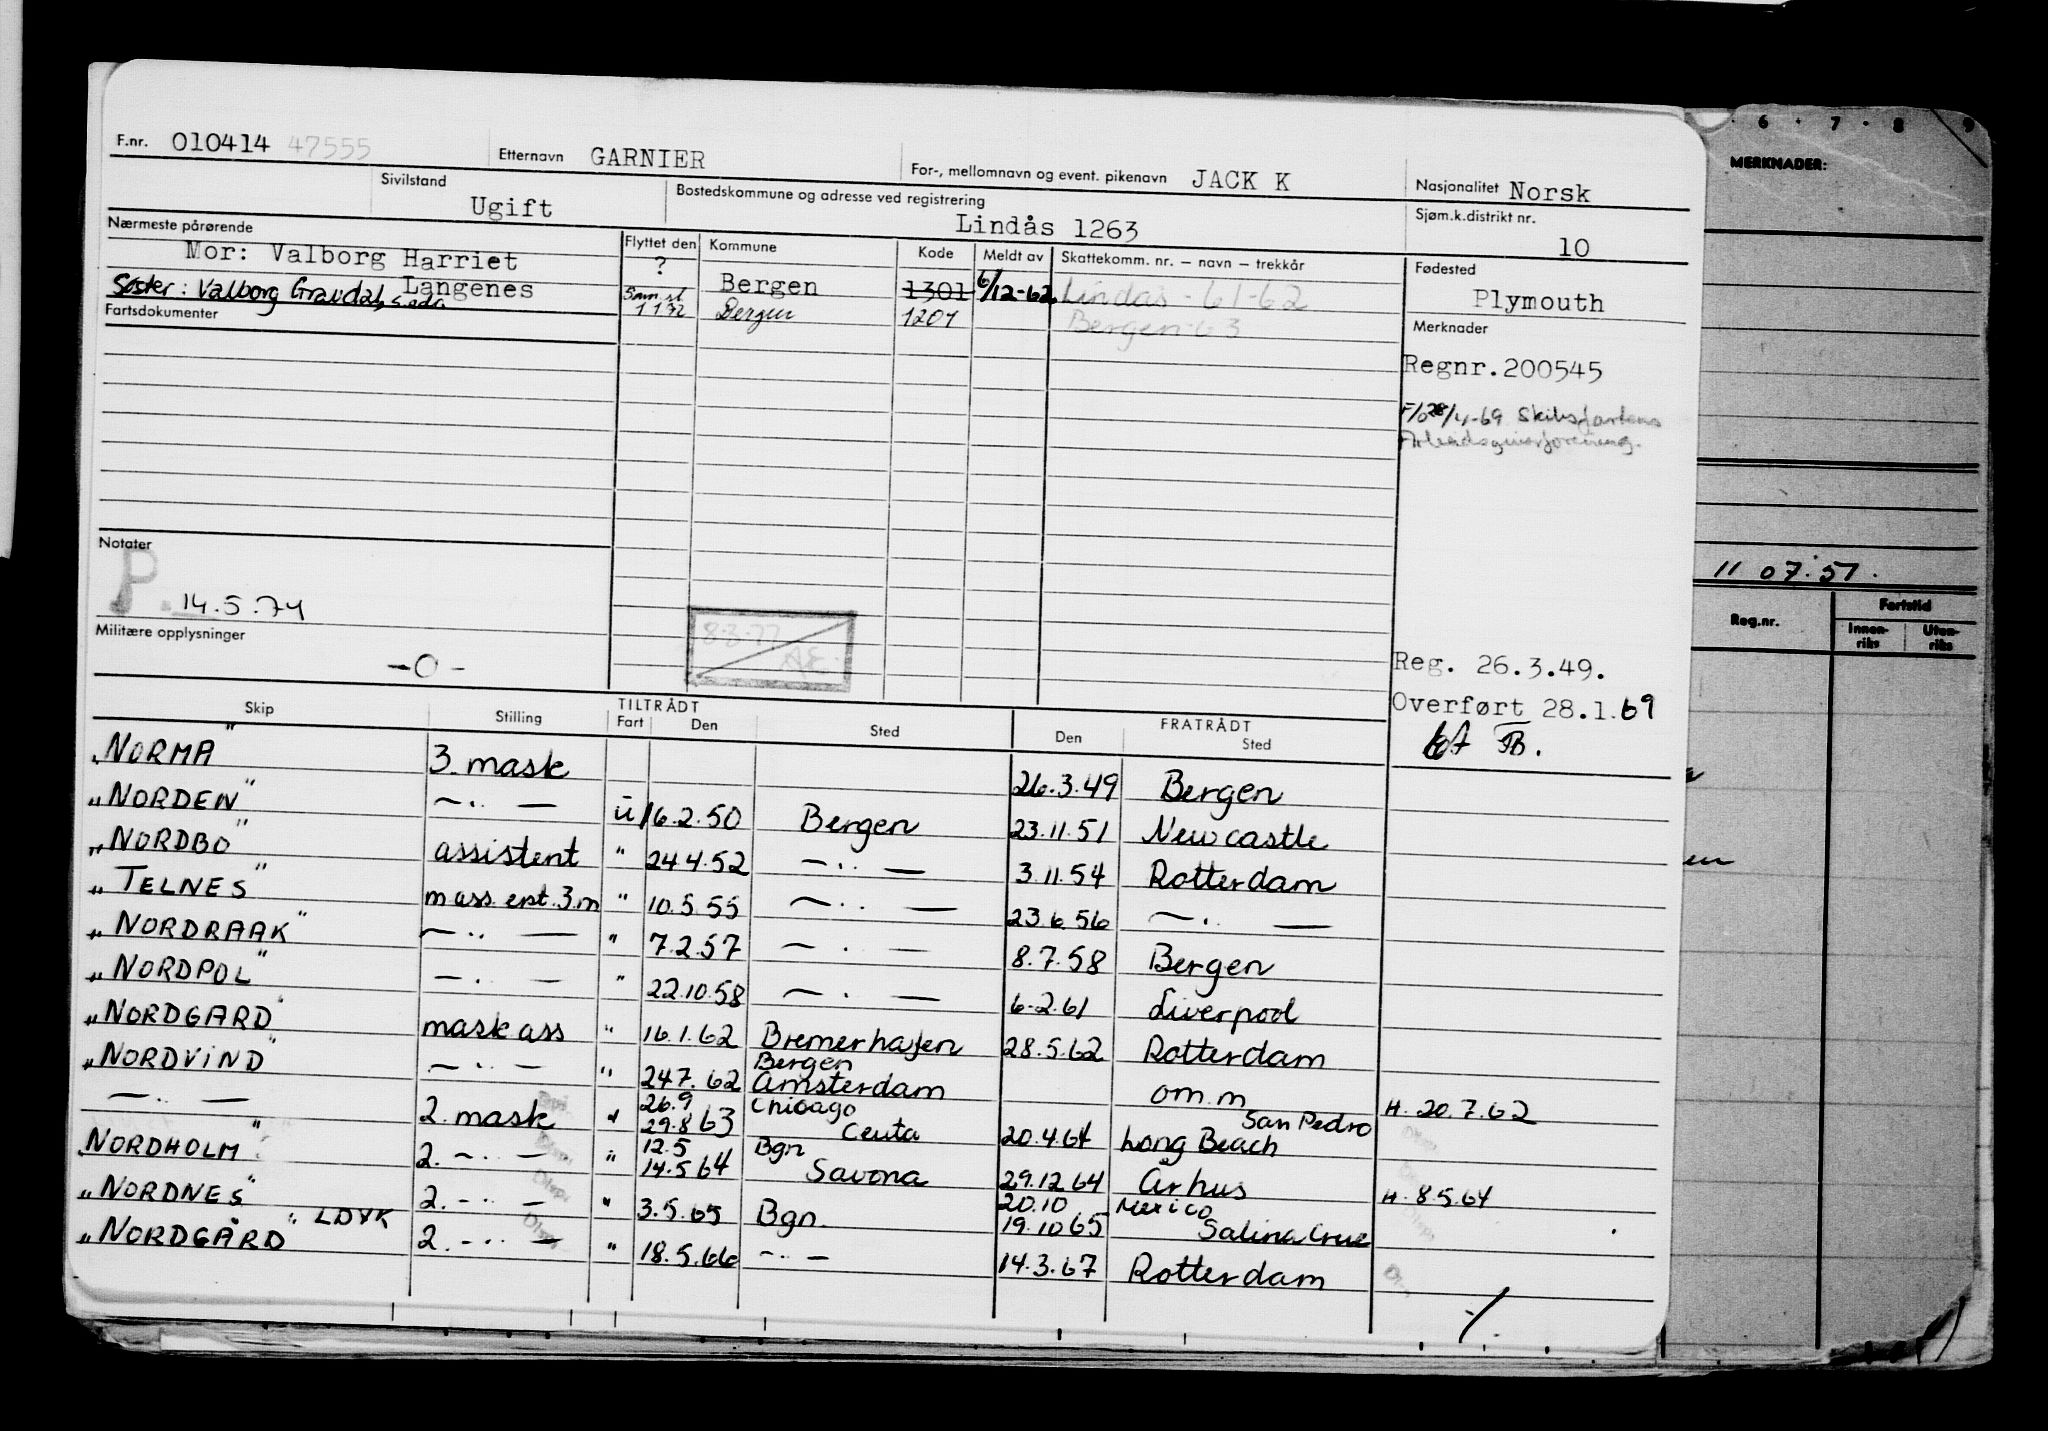 F.nr. 010414 47555 Etternavn GARNIER For-, mellomnavn og event. pikenavn JACK K Nasjonalitet Norsk
Sivilstand Ugift Bostedskommune og adresse ved registrering Lindås 1263 Sjøm.k.distrikt nr. 10
Nærmeste pårørende Flyttet den Kommune Kode Meldt av Skattekomm. nr. – navn – trekkår Fødested
Mor: Valborg Harriet ? Bergen 1301 6/12-62 Lindås - 61-62 Plymouth
Langenes
Søster: Valborg Gravdal, s. adr. Sam. st. 1172 Bergen 1201 Bergen 63
Fartsdokumenter Merknader
Regnr. 200545
F/o 28/4-69 Skibsfartens
Arbeidsgiverforening.
Notater
P. 14.5.74
Militære opplysninger
-0-
8.3.77
AE.
Reg. 26.3.49.
Overført 28.1.69
Skip Stilling TILTRÅDT Fart Den Sted FRATRÅDT Den Sted
"NORMA" 3. mask 26.3.49 Bergen
"NORDEN" —..— u 16.2.50 Bergen 23.11.51 Newcastle
"NORDBO" assistent " 24.4.52 —.— 3.11.54 Rotterdam
"TELNES" mass. ent. 3.m " 10.5.55 —..— 23.6.56 —.—
"NORDRAAK" —..— " 7.2.57 —.— 8.7.58 Bergen
"NORDPOL" —.— " 22.10.58 —.— 6.2.61 Liverpool
"NORDGARD" mask ass " 16.1.62 Bremerhafen 28.5.62 Rotterdam
"NORDVIND" —..— " 24.7.62 Bergen Amsterdam om.m H. 20.7.62
—..— 2. mask " 26.9 29.8 63 Chicago Ceuta 20.4.64 San Pedro Long Beach
NORDHOLM" 2. —..— " 12.5 14.5.64 Bgn Savona 29.12.64 Århus H. 8.5.64
"NORDNES" 2. —..— " 3.5.65 Bgn. 20.10 19.10 65 Mexico Salina Cruz
"NORDGÅRD" LDVK 2. —..— " 18.5.66 —..— 14.3.67 Rotterdam
./.
6 7 8 9
MERKNADER:
11 07.51.
Reg.nr. Fartstid
Innen-riks Uten-riks